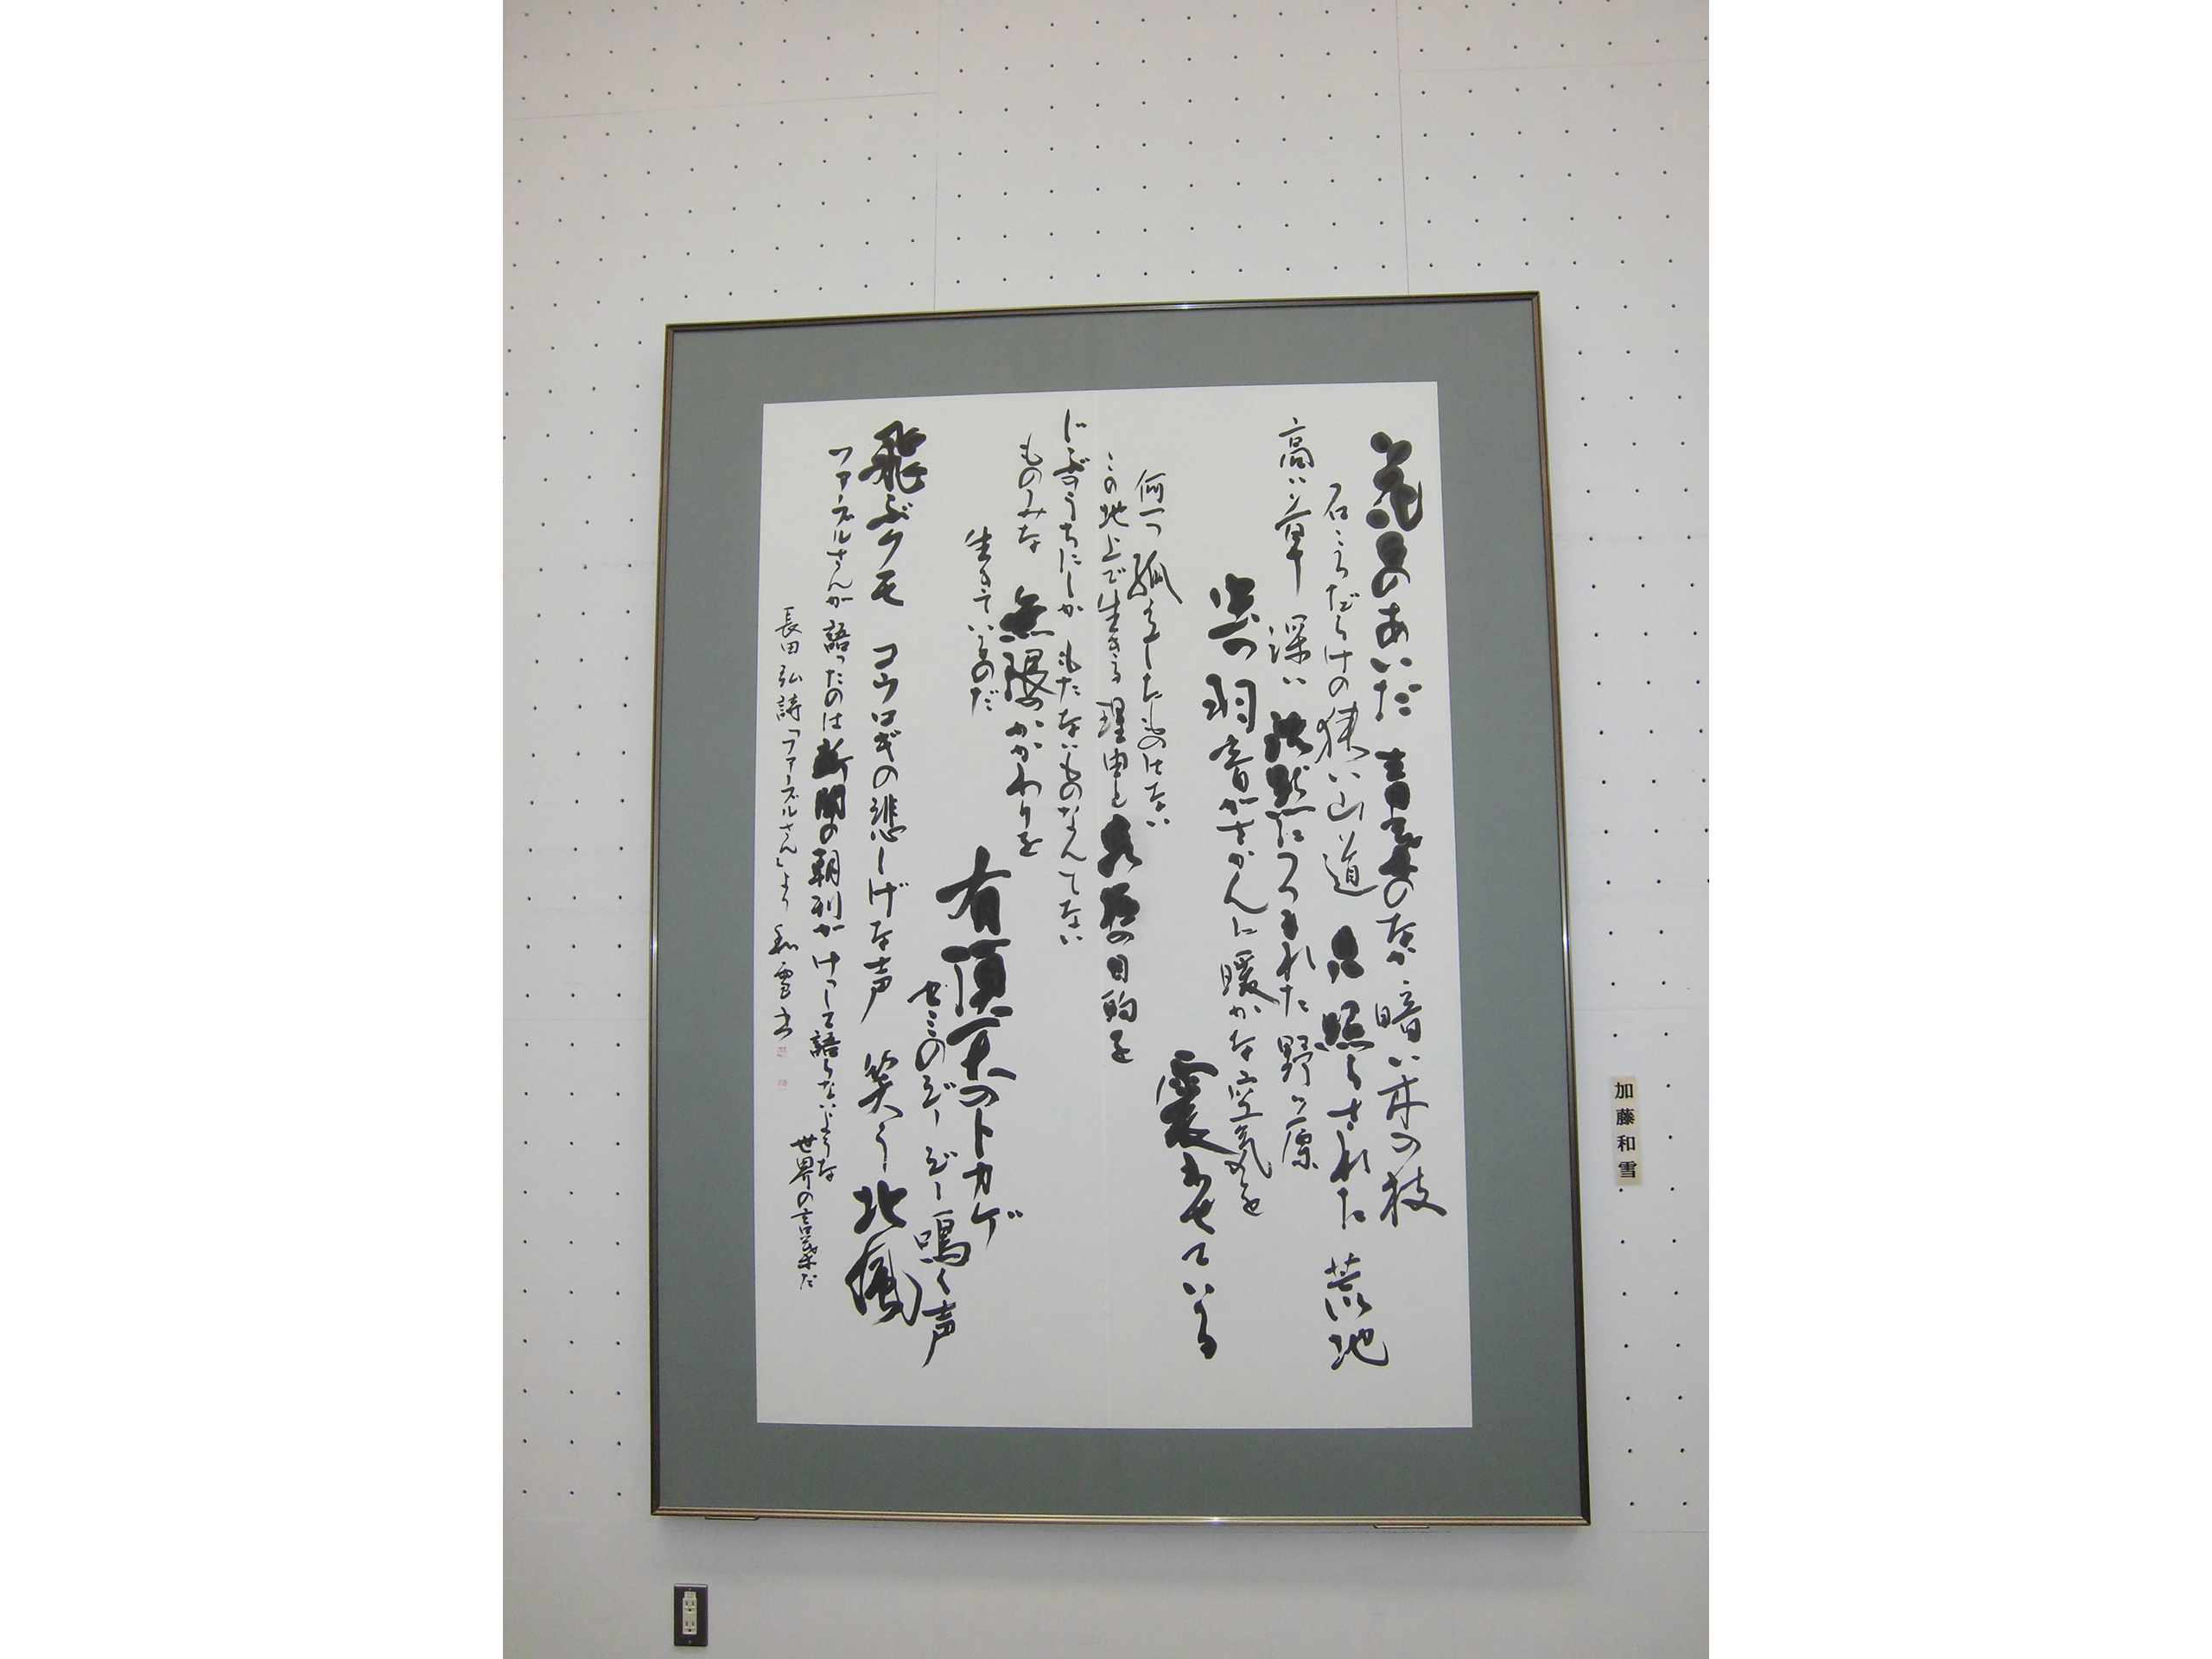 花々のあいだ 青葉のなか 暗い木の枝
石ころだらけの狭い山道 日に照らされた 荒地
高い草 深い 沈黙につつまれた 野ッ原
虫の羽音がさかんに暖かな空気を
震わせている
何一つ 孤立したものはない
この地上で生きる 理由と の目的を
じぶんのうちにしか もたないものなんてない
ものみな 無限のかかわりを
生きているのだ
有頂天のトカゲ
セミのジージー鳴く声
飛ぶクモ コウロギの悲しげな声 笑う北風
ファーブルさんが語ったのは新聞の朝刊が けっして語らないような
世界の言葉だ
長田弘 詩「ファーブルさん」より 和雪書
加藤和雪